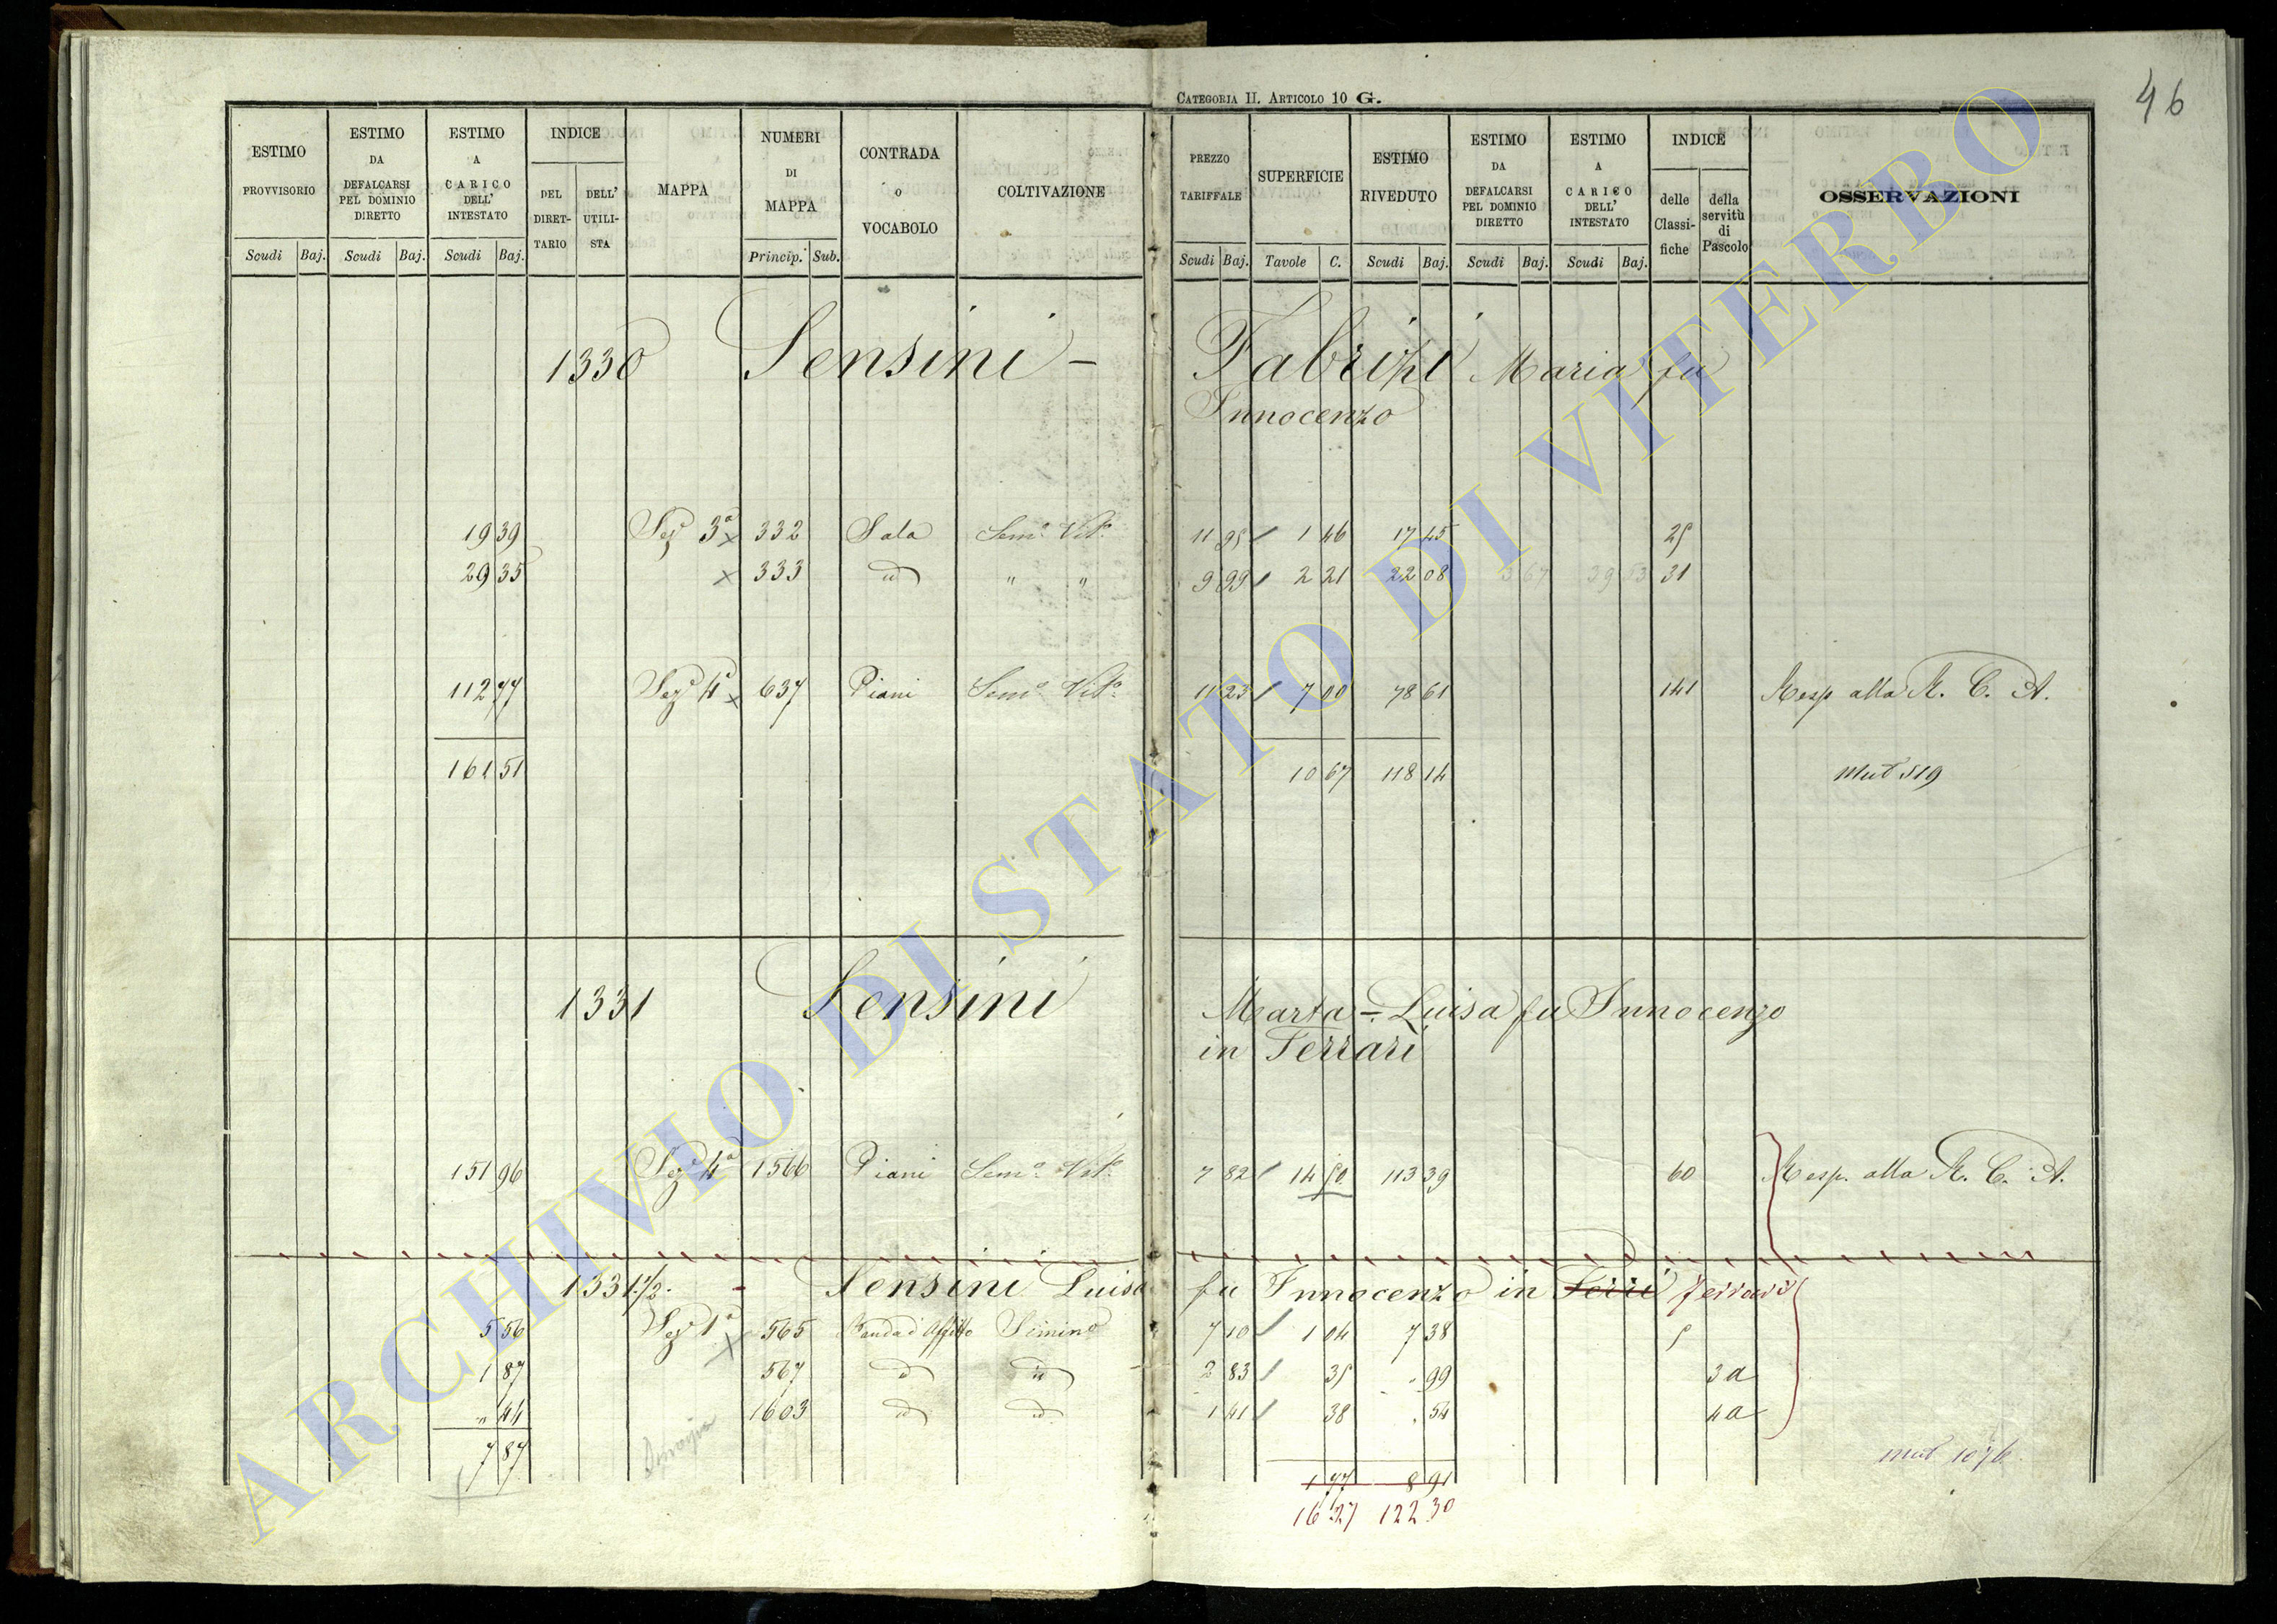 46
CATEGORIA II. ARTICOLO 10 G.
ESTIMO PROVVISORIO
Scudi Baj.
ESTIMO DA DEFALCARSI PEL DOMINIO DIRETTO
Scudi Baj.
ESTIMO A CARICO DELL' INTESTATO
Scudi Baj.
INDICE
DEL DIRET-TARIO
DELL' UTILI-STA
MAPPA
NUMERI DI MAPPA
Princip. Sub.
CONTRADA o VOCABOLO
COLTIVAZIONE
PREZZO TARIFFALE
Scudi Baj.
SUPERFICIE
Tavole C.
ESTIMO RIVEDUTO
Scudi Baj.
ESTIMO DA DEFALCARSI PEL DOMINIO DIRETTO
Scudi Baj.
ESTIMO A CARICO DELL' INTESTATO
Scudi Baj.
INDICE
delle Classi-fiche
della servitù di Pascolo
OSSERVAZIONI
1330 Sensini - Fabrizi Maria fu
Innocenzo
19 39 Seze 3a x 332 Sala Semo Vito 11 95 1 46 17 45 25
29 35 x 333 id " " 9 99 2 21 22 08 3 67 39 53 31
112 77 Seze 4a x 637 Piani Semo Vito 11 23 7 00 78 61 141 Resp alla R. C. A.
161 51 10 67 118 14 Mut 519
1331 Sensini Marta - Luisa fu Innocenzo
in Ferrari
151 96 Seze 4a 1566 Piani Semo Vito 7 82 14 50 113 39 60 Resp. alla R. C. A.
1331 1/2 - Sensini Luisa fu Innocenzo in Ferri Ferrari
5 56 Seze 1a x 565 Banda d' Affitto Simino 7 10 1 04 7 38 5
1 87 567 id id 2 83 35 " 99 3a
" 44 1603 id id 1 41 38 . 54 4a
7 87 mut 1076.
x 1 77 8 91
16 27 122 30
ARCHIVIO DI STATO DI VITERBO